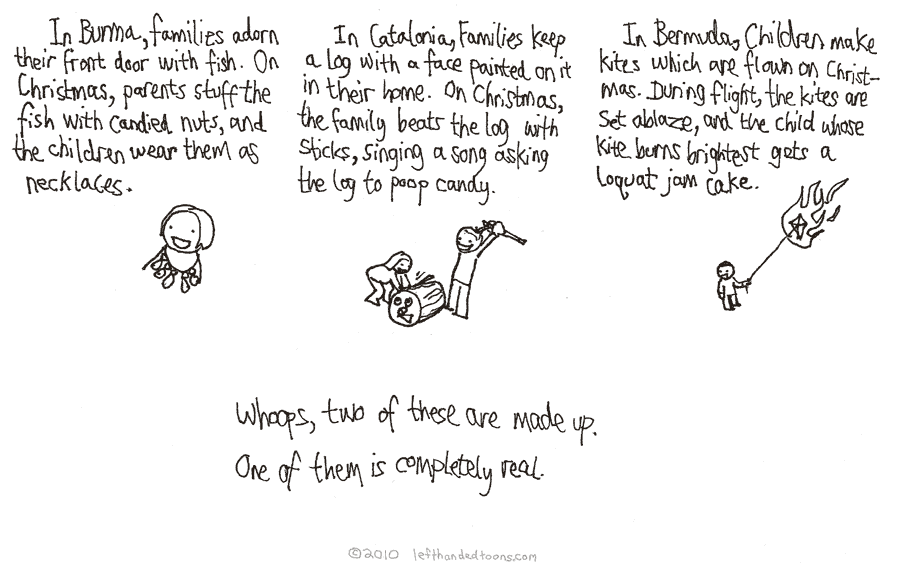 In Burma, families adorn
their front door with fish. On
Christmas, parents stuff the
fish with candied nuts, and
the children wear them as
necklaces.
In Catalonia, Families keep
a log with a face painted on it
in their home. On Christmas,
the family beats the log with
sticks, singing a song asking
the log to poop candy.
In Bermuda, Children make
kites which are flown on Christ-
mas. During flight, the kites are
set ablaze, and the child whose
kite burns brightest gets a
loquat jam cake.
Whoops, two of these are made up.
One of them is completely real.
©2010 lefthandedtoons.com